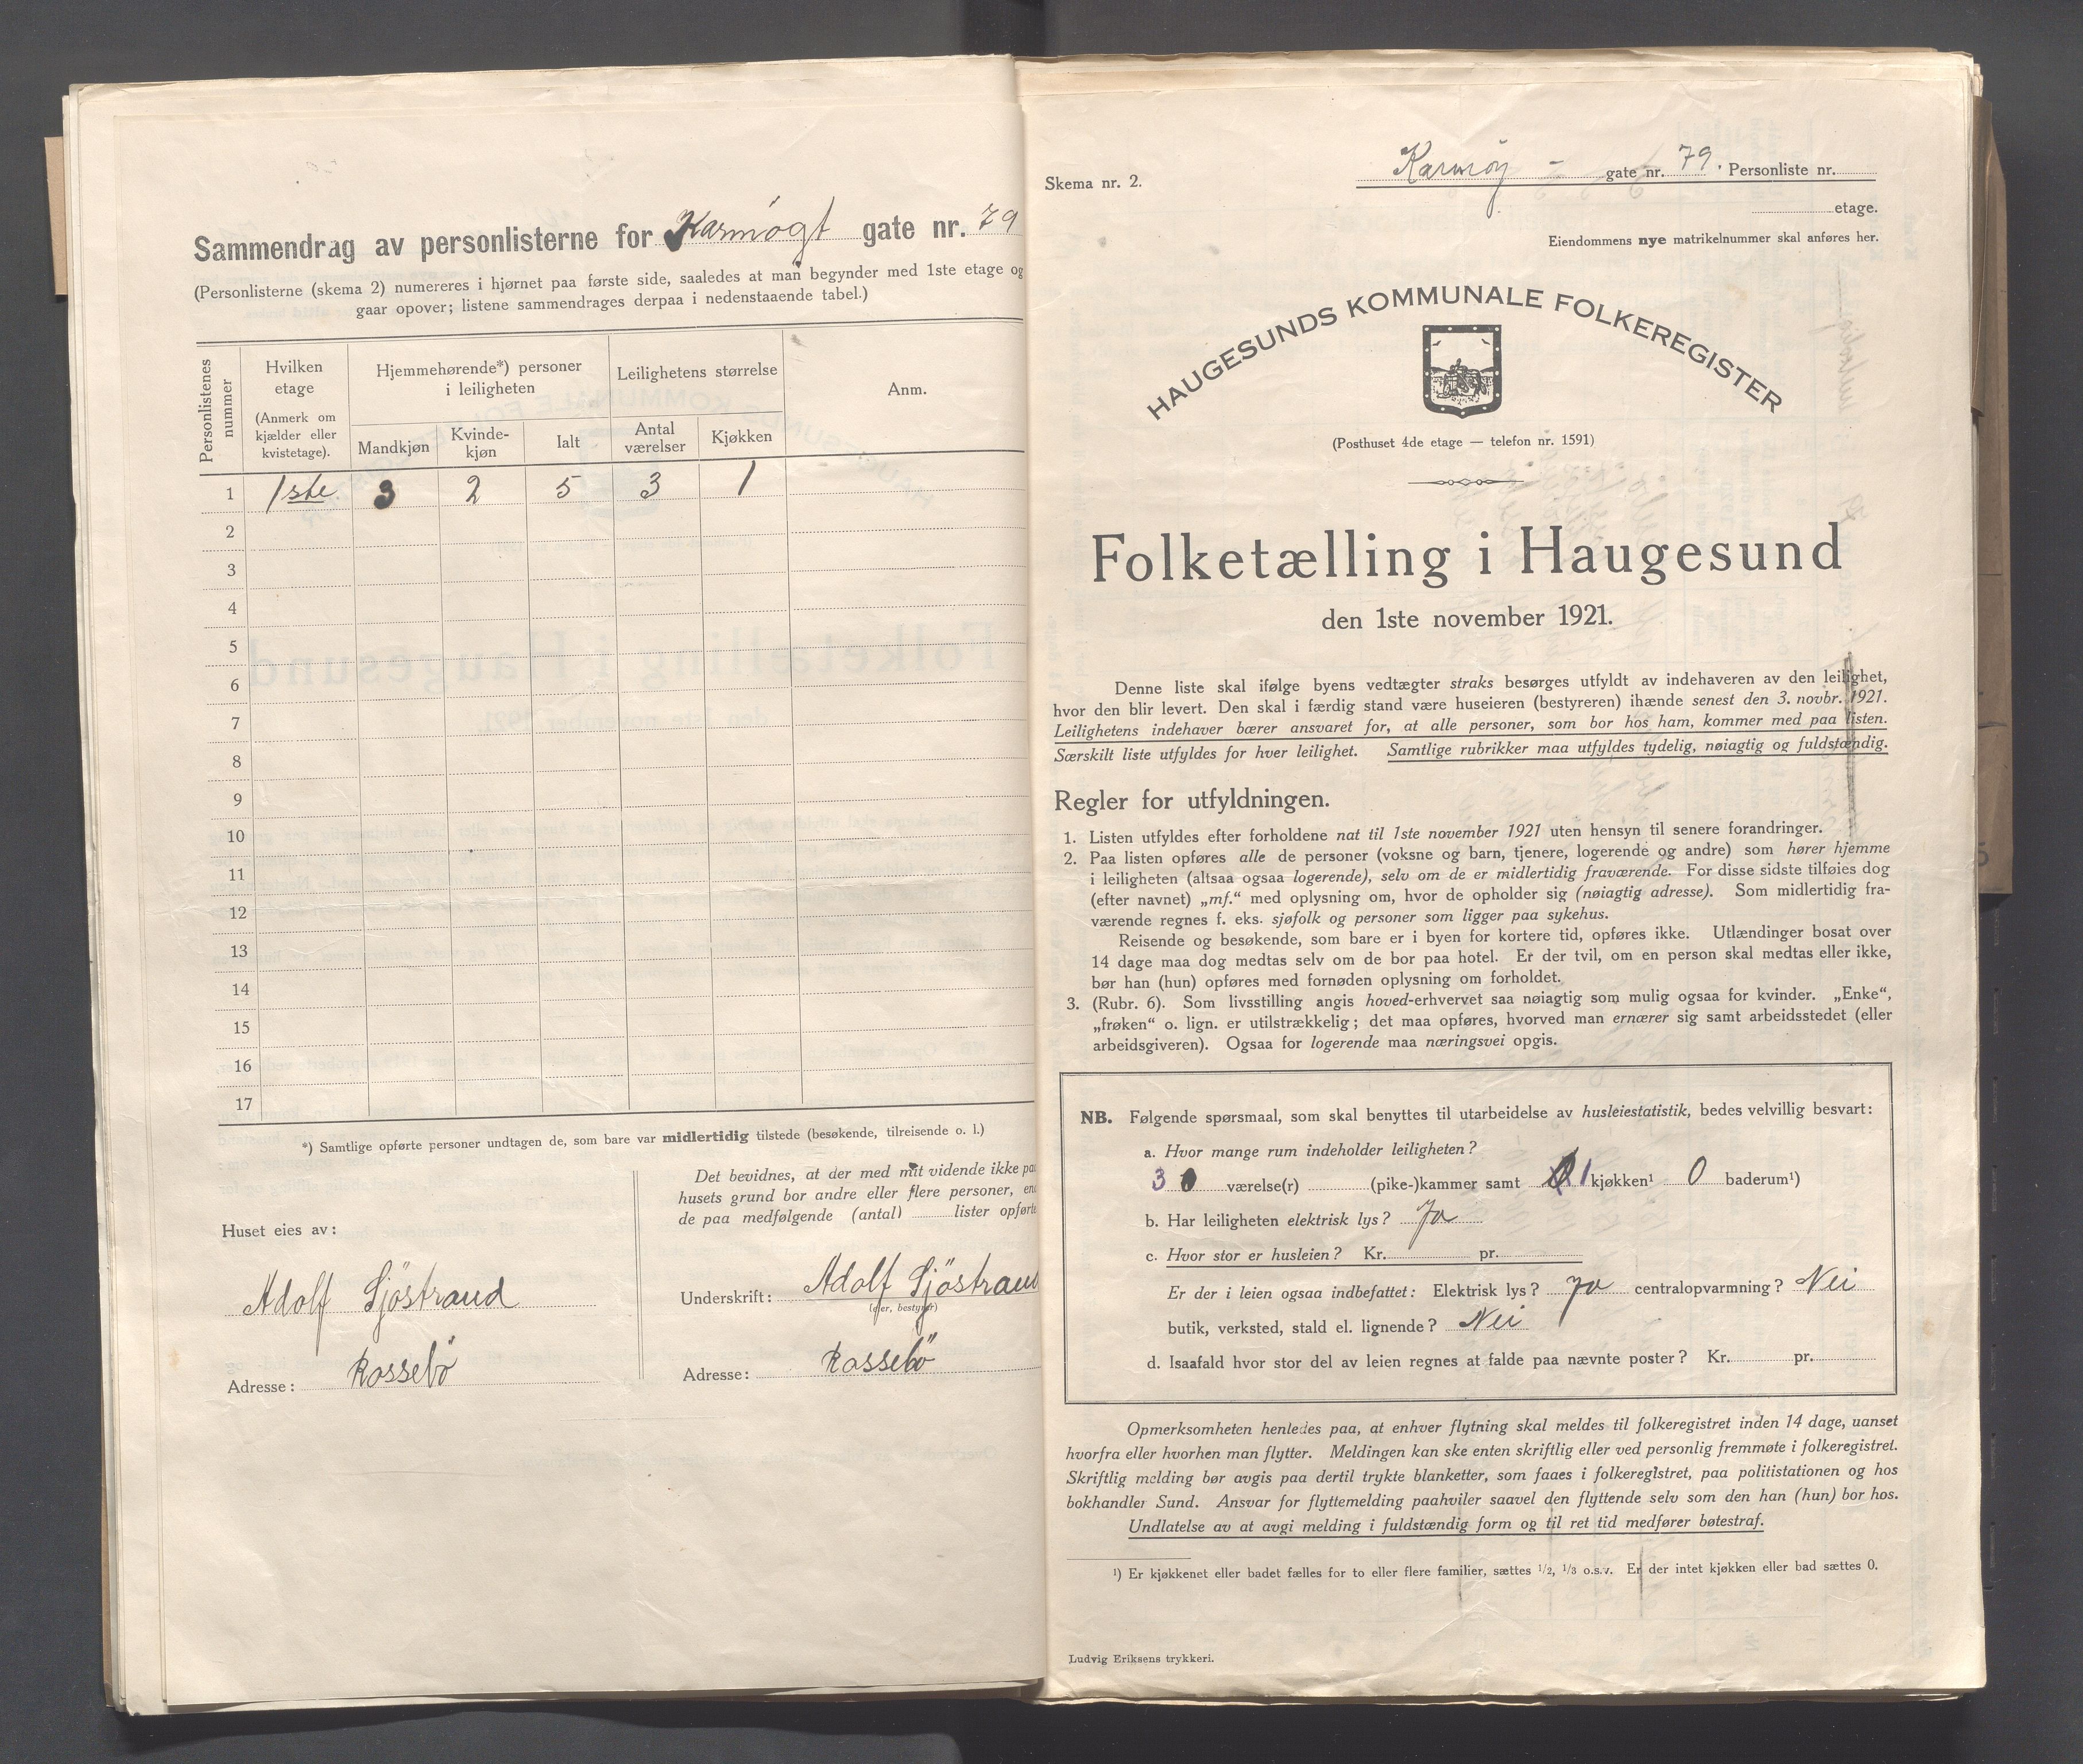 Sammendrag av personlisterne for Karmøgt gate nr. 79
(Personlisterne (skema 2) numereres i hjørnet paa første side, saaledes at man begynder med 1ste etage og
gaar opover; listene sammendrages derpaa i nedenstaaende tabel.)
Personlistenes nummer
Hvilken etage (Anmerk om kjælder eller kvistetage).
Hjemmehørende*) personer i leiligheten
Leilighetens størrelse
Anm.
Mandkjøn
Kvinde-kjøn
Ialt
Antal værelser
Kjøkken
1 1ste. 3 2 5 3 1
2
3
4
5
6
7
8
9
10
11
12
13
14
15
16
17
*) Samtlige opførte personer undtagen de, som bare var midlertidig tilstede (besøkende, tilreisende o. l.)
Huset eies av:
Adolf Sjöstrand
Adresse: Rossebö
Det bevidnes, at der med mit vidende ikke paa
husets grund bor andre eller flere personer, end
de paa medfølgende (antal) lister opførte
Underskrift: Adolf Sjöstrand
(eier, bestyrer)
Adresse: Rossebö
Skema nr. 2.
Karmøy - gate nr. 79. Personliste nr.
etage.
Eiendommens nye matrikelnummer skal anføres her.
HAUGESUNDS KOMMUNALE FOLKEREGISTER
(Posthuset 4de etage — telefon nr. 1591)
Folketælling i Haugesund
den 1ste november 1921.
Denne liste skal ifølge byens vedtægter straks besørges utfyldt av indehaveren av den leilighet,
hvor den blir levert. Den skal i færdig stand være huseieren (bestyreren) ihænde senest den 3. novbr. 1921.
Leilighetens indehaver bærer ansvaret for, at alle personer, som bor hos ham, kommer med paa listen.
Særskilt liste utfyldes for hver leilighet. Samtlige rubrikker maa utfyldes tydelig, nøiagtig og fuldstændig.
Regler for utfyldningen.
1. Listen utfyldes efter forholdene nat til 1ste november 1921 uten hensyn til senere forandringer.
2. Paa listen opføres alle de personer (voksne og barn, tjenere, logerende og andre) som hører hjemme
i leiligheten (altsaa ogsaa logerende), selv om de er midlertidig fraværende. For disse sidste tilføies dog
(efter navnet) „mf.“ med oplysning om, hvor de opholder sig (nøiagtig adresse). Som midlertidig fra-
værende regnes f. eks. sjøfolk og personer som ligger paa sykehus.
Reisende og besøkende, som bare er i byen for kortere tid, opføres ikke. Utlændinger bosat over
14 dage maa dog medtas selv om de bor paa hotel. Er der tvil, om en person skal medtas eller ikke,
bør han (hun) opføres med fornøden oplysning om forholdet.
3. (Rubr. 6). Som livsstilling angis hoved-erhvervet saa nøiagtig som mulig ogsaa for kvinder. „Enke“,
„frøken“ o. lign. er utilstrækkelig; det maa opføres, hvorved man ernærer sig samt arbeidsstedet (eller
arbeidsgiveren). Ogsaa for logerende maa næringsvei opgis.
NB. Følgende spørsmaal, som skal benyttes til utarbeidelse av husleiestatistik, bedes velvillig besvart:
a. Hvor mange rum indeholder leiligheten?
3 0 værelse(r) (pike-)kammer samt 0 1 kjøkken¹ 0 baderum¹)
b. Har leiligheten elektrisk lys? Ja
c. Hvor stor er husleien? Kr. pr.
Er der i leien ogsaa indbefattet: Elektrisk lys? Ja centralopvarmning? Nei
butik, verksted, stald el. lignende? Nei
d. Isaafald hvor stor del av leien regnes at falde paa nævnte poster? Kr. pr.
Opmerksomheten henledes paa, at enhver flytning skal meldes til folkeregistret inden 14 dage, uanset
hvorfra eller hvorhen man flytter. Meldingen kan ske enten skriftlig eller ved personlig fremmøte i folkeregistret.
Skriftlig melding bør avgis paa dertil trykte blanketter, som faaes i folkeregistret, paa politistationen og hos
bokhandler Sund. Ansvar for flyttemelding paahviler saavel den flyttende selv som den han (hun) bor hos.
Undlatelse av at avgi melding i fuldstændig form og til ret tid medfører bøtestraf.
¹) Er kjøkkenet eller badet fælles for to eller flere familier, sættes 1/2, 1/3 o.s.v. Er der intet kjøkken eller bad sættes 0.
Ludvig Eriksens trykkeri.